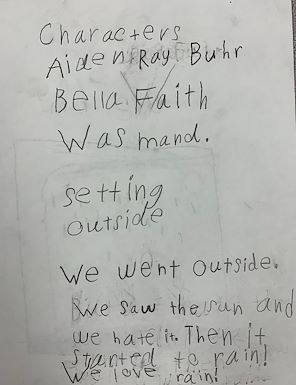 Characters
Aiden Ray Buhr
Bella Faith
Was mand.
setting
outside
We went outside.
We saw the sun and
we hate it. Then it
started to rain!
We love rain!